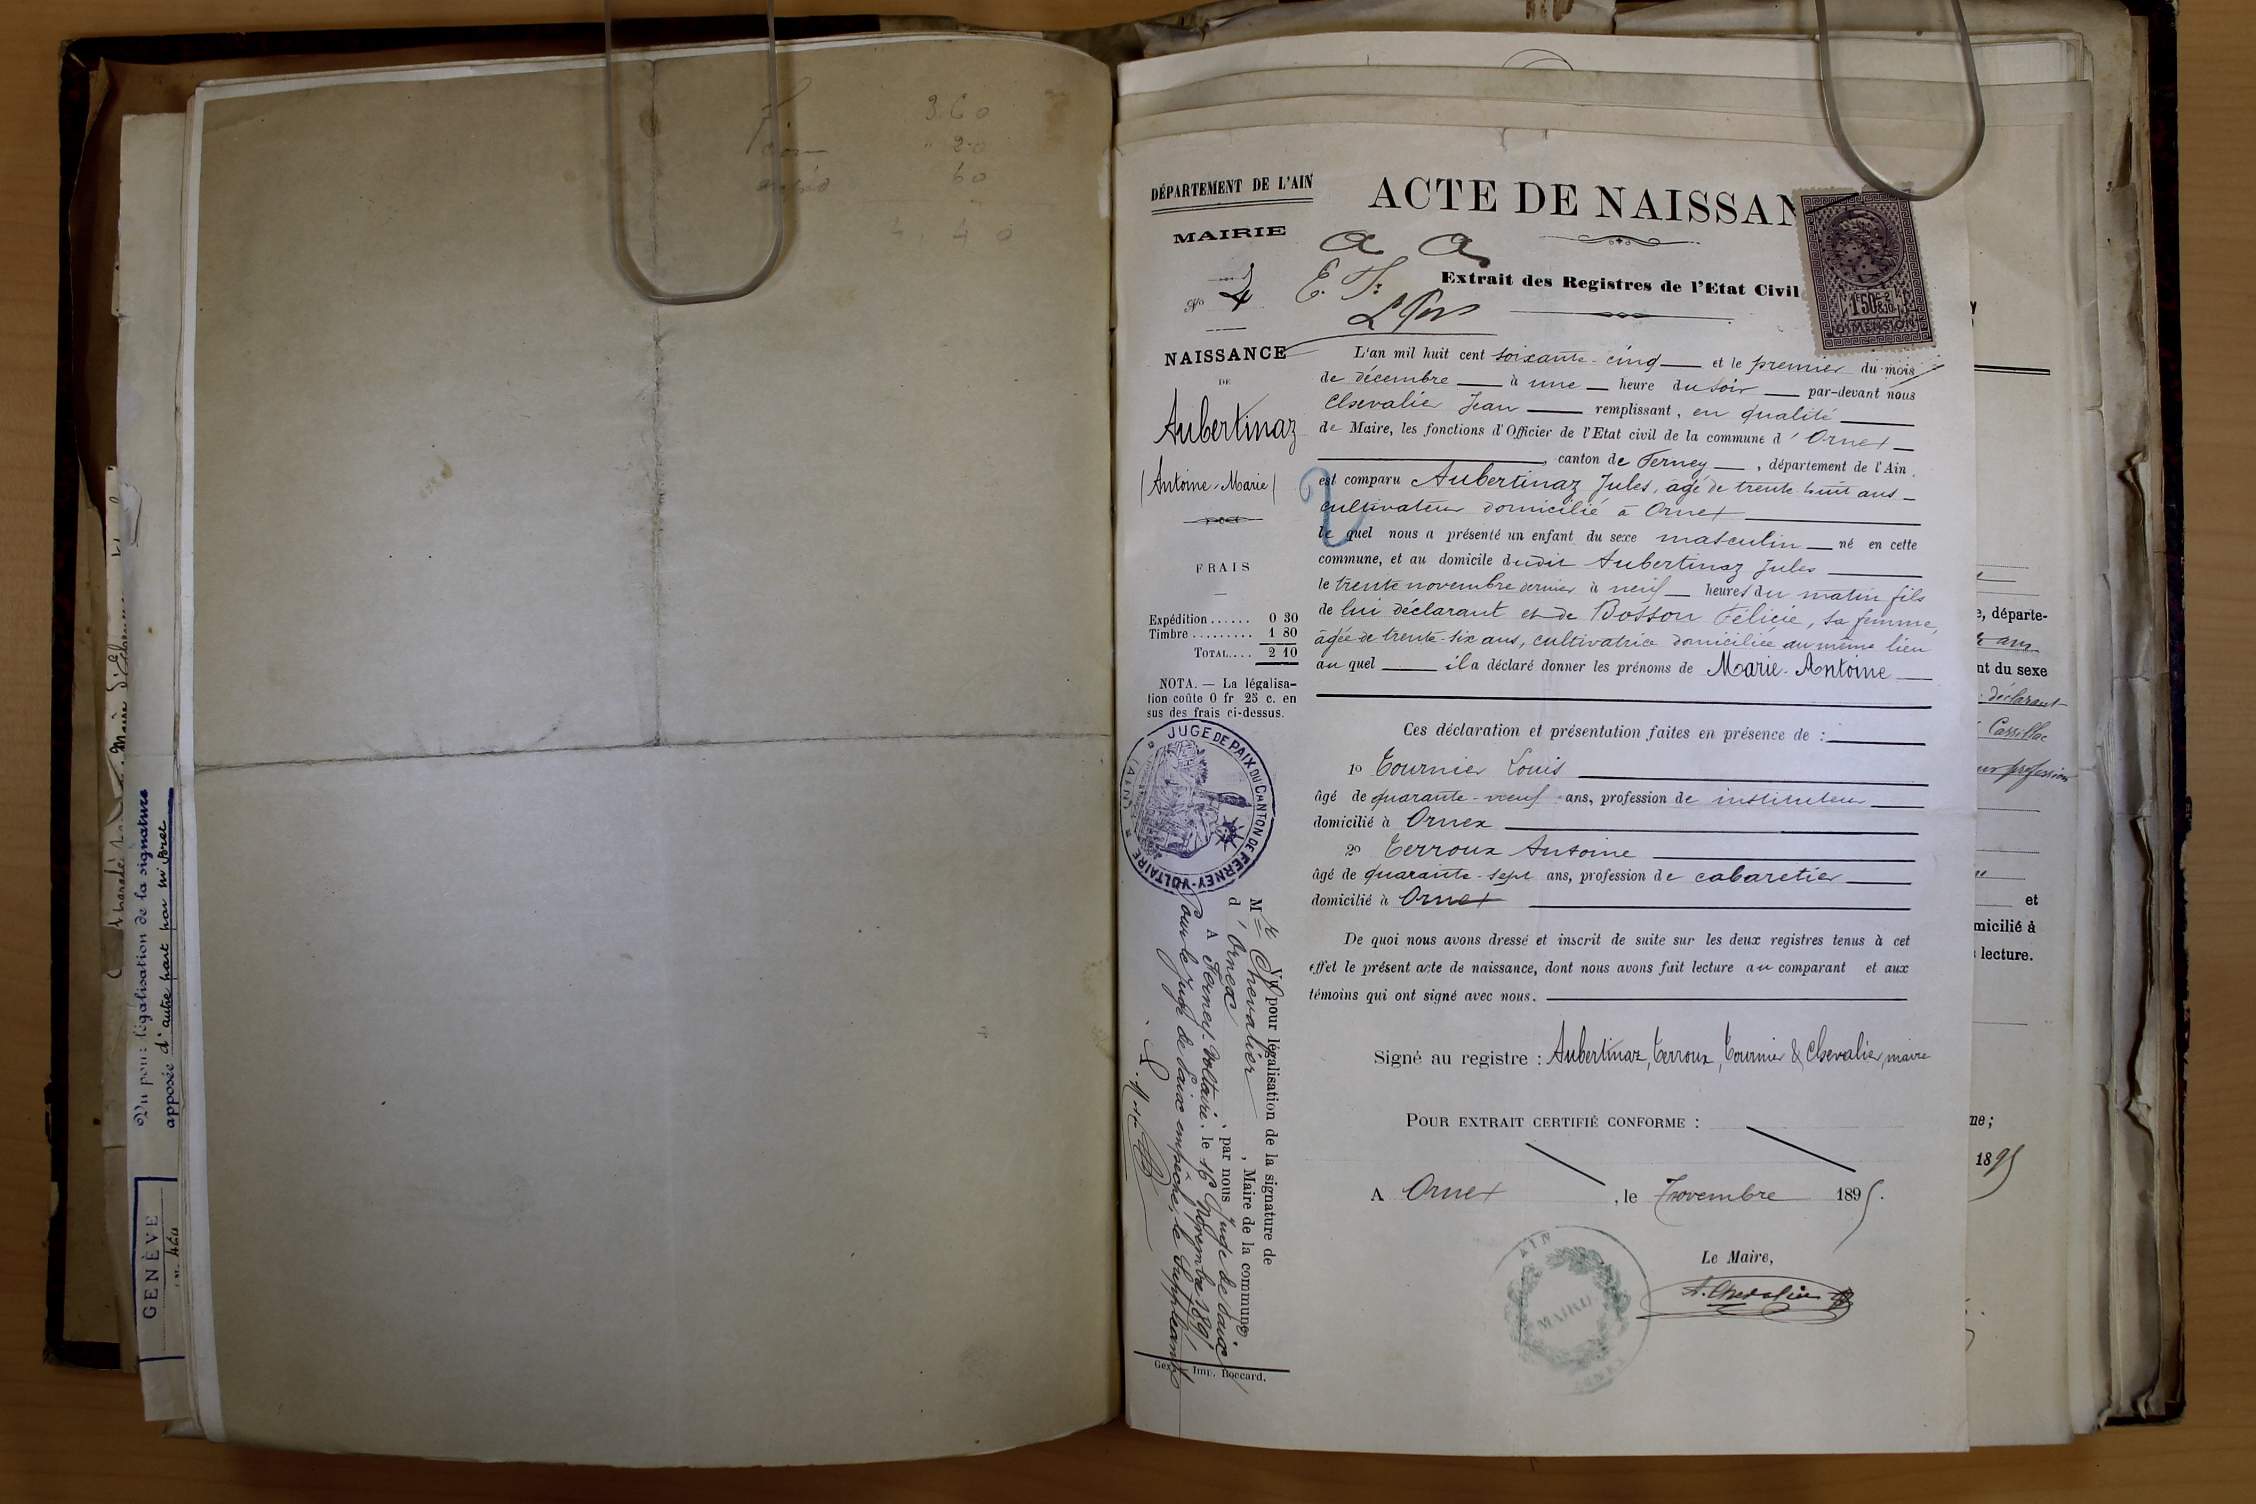 3 60
" 20
60
4, 40
Vu pour légalisation de la signature
apposée d'autre part par Mr Poret
GENÈVE
DÉPARTEMENT DE L'AIN
MAIRIE
d
No 4
NAISSANCE
DE
Aubertinaz
(Antoine-Marie)
FRAIS
Expédition...... 0 30
Timbre......... 1 80
TOTAL.... 2 10
NOTA. — La légalisa-
tion coûte 0 fr 25 c. en
sus des frais ci-dessus.
JUGE DE PAIX DU CANTON DE FERNEY-VOLTAIRE * (AIN) *
Vu pour légalisation de la signature de
Mr Chevalier, Maire de la commune
d'Ornex, par nous Juge de Paix
A Ferney-Voltaire, le 16 Novembre 1895
Pour le Juge de Paix empêché, le Suppléant
Gex, Imp. Boccard.
ACTE DE NAISSAN
a a
E. F.
Extrait des Registres de l'Etat Civil
1F50c
2/10
DIMENSION
L'an mil huit cent soixante-cinq et le premier du mois
de décembre à une heure du soir par-devant nous
Chevalier Jean remplissant, en qualité
de Maire, les fonctions d'Officier de l'Etat civil de la commune d'Ornex
, canton de Ferney, département de l'Ain.
est comparu Aubertinaz Jules, âgé de trente huit ans
cultivateur domicilié à Ornex
le quel nous a présenté un enfant du sexe masculin né en cette
commune, et au domicile dudit Aubertinaz Jules
le trente novembre dernier à neuf heures du matin fils
de lui déclarant et de Bosson Félicie, sa femme,
âgée de trente-six ans, cultivatrice domiciliée au même lieu
au quel il a déclaré donner les prénoms de Marie-Antoine
Ces déclaration et présentation faites en présence de :
1o Tournier Louis
âgé de quarante-neuf ans, profession de instituteur
domicilié à Ornex
2o Terroux Antoine
âgé de quarante-sept ans, profession de cabaretier
domicilié à Ornex
De quoi nous avons dressé et inscrit de suite sur les deux registres tenus à cet
effet le présent acte de naissance, dont nous avons fait lecture au comparant et aux
témoins qui ont signé avec nous.
Signé au registre : Aubertinaz, Terroux, Tournier & Chevalier, maire
POUR EXTRAIT CERTIFIÉ CONFORME :
A Ornex, le novembre 1895.
Le Maire,
A. Chevalier
AIN
MAIRIE
e, départe-
ans
nt du sexe
déclarant
Cassillac
leur profession
et
micilié à
lecture.
me ;
1895